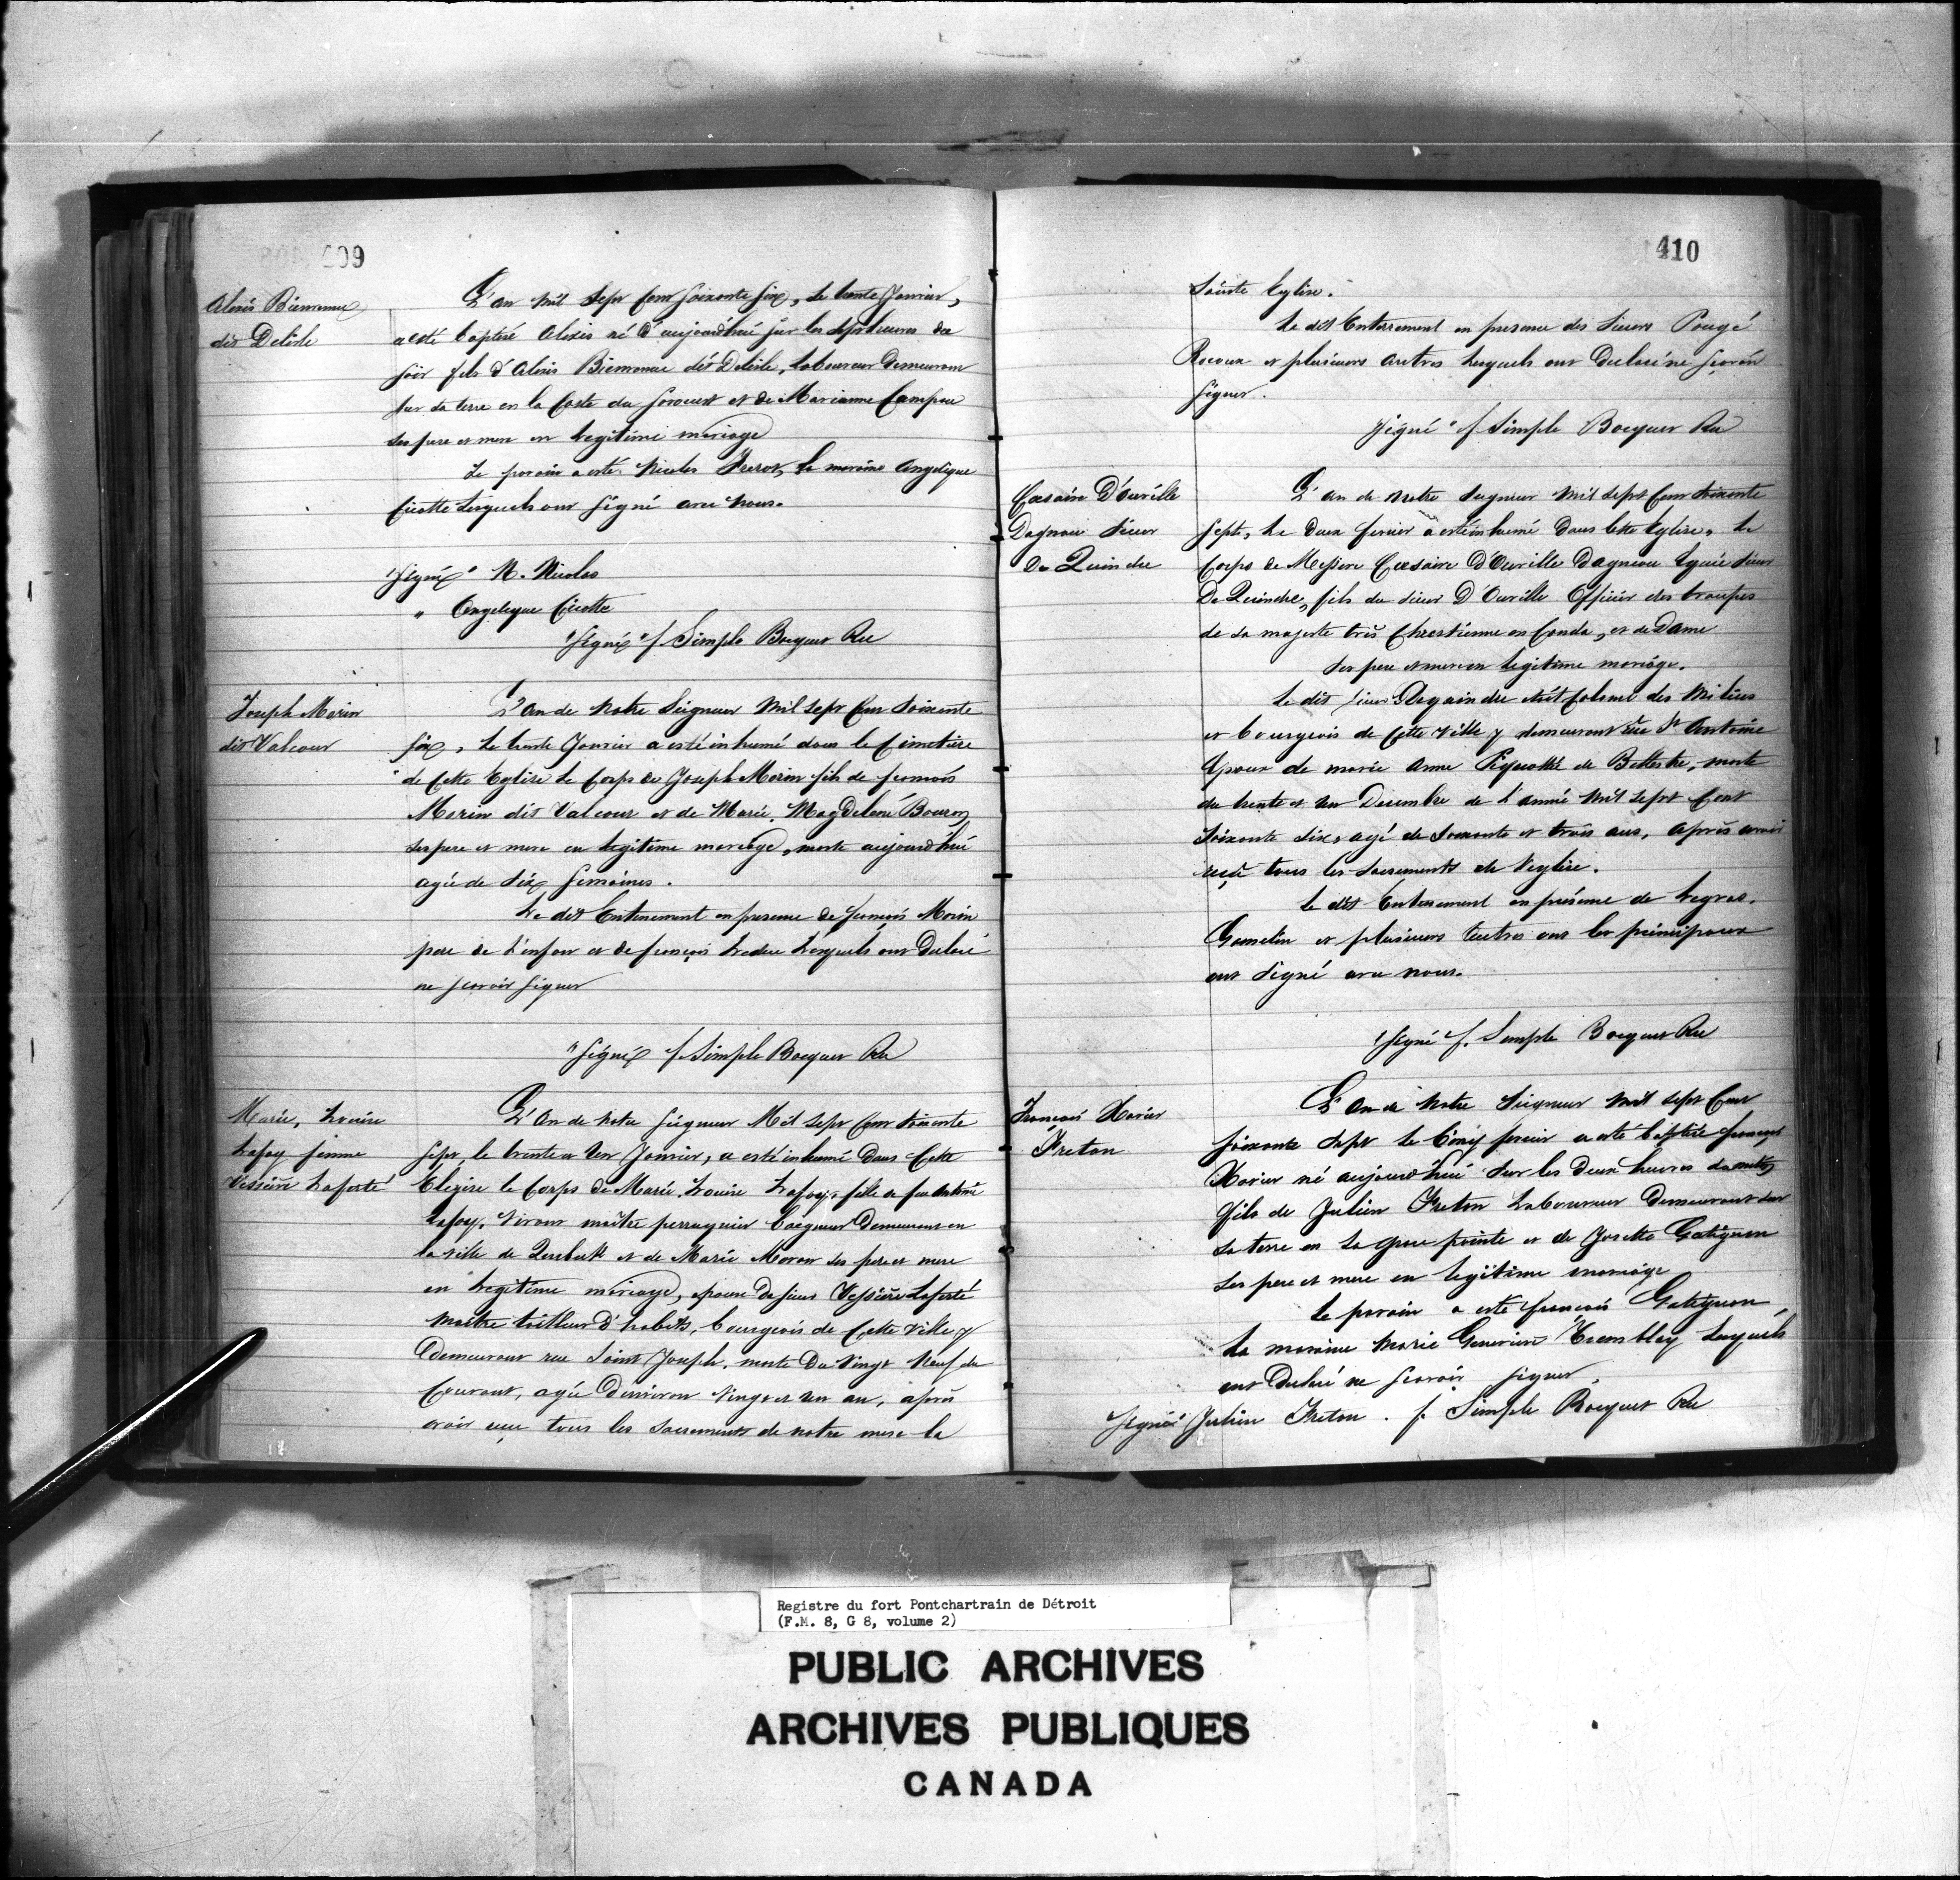 409
Alexis Bienvenue
dit Delisle
L'an mil Sept Cent Soixante six, le trente Janvier,
a esté baptisé Alexis né d'aujourd'hui sur les sept heures du
soir fils d'Alexis Bienvenue dit Delisle, laboureur demeurant
sur sa terre en la Coste du sorouest et de Marianne Campau
ses pere et mere en legitime mariage
Le parain a esté Nicolas la maraine Angelique
Cicotte lesquels ont signé avec nous.
"Signé" N. Nicolas
" Angelique Cicotte
"Signé" f Simple Bocquet Rec
Joseph Morin
dit Valcour
L'an de Notre Seigneur Mil Sept Cent Soixante
six, le trente Janvier a esté inhumé dans le Cimetière
de Cette Eglise le Corps de Joseph Morin fils de francois
Morin dit Valcour et de Marie Magdelene Bouron
ses pere et mere en legitime mariage, morte aujourd'hui
agée de Six semaines.
Le dit Enterrement en presence de francois Morin
pere de l'enfant et de françois Ledue lesquels ont Declaré
ne scavoir signer
"Signé f Simple Bocquet Rec
Marie, Louise
Lafoy femme
Vessière Laferté
L'An de Notre Seigneur Mil Sept Cent Soixante
Sept le trente et Un Janvier, a esté inhumé Dans Cette
Elegise le Corps de Marie Louise Lafoy, fille de feu Antoine
Lafoy, vivant maître perruquier baigneur Demeurant en
la ville de Quebek et de Marie Moran ses pere et mere
en legitime mariage, epouse du sieur Vessière Laferté
Maitre tailleur d'habits, bourgeois de Cette Ville y
Demeurant rue Saint Joseph, morte Du Vingt Neuf du
Courant, agée D'environ Vingt et un an, après
avoir eue tous les Sacrements de notre mere la
410
Sainte Eglise.
Le dit Enterrement en presence des Sieurs Pougé
Rocoux et plusieurs autres lesquels ont Declaré ne scavoir
signer.
Signé "f Simple Bocquet Rec
Caesaire D'ouville
Dagnau Sieur
De Quindre
L'an de Notre Seigneur Mil Sept Cent Soixante
Sept, le Deux fevrier a esté inhumé Dans Cette Eglise, le
Corps de Messire Caesaire D'Ouville Dagneau Equié Sieur
De Quindre, fils du sieur D'Ouville Officier des troupes
de Sa majesté très Chrestienne en Canda, et de Dame
ses pere et mere en legitime mariage.
Le dit sieur Dequaindre étoit Colonel des Milices
et bourgeois de Cette Ville y demeurant rüe St Antoine
Epoux de marie Anne Piquotté de Bellestre, morte
du trente et Un Decembre de l'année Mil Sept Cent
Soixante Six, agé de Soixante et trois ans, après avoir
reçü tous les Sacrements de l'eglise.
Le dit Enterrement en présence de Legras,
Gamelin et plusieurs autres dont les principaux
ont Signé avec nous.
Signé f. Simple Bocquet Rec
François Xavier
Freton
L'an de Notre Seigneur Mil Sept Cent
Soixante Sept le Cinq fevrier a esté baptisé françois
Xavier né aujourd'hui Sur les Deux heures du matin
fils de Julien Freton Laboureur Demeurant sur
sa terre en la Grose pointe et de Josette Gatignon
ses pere et mere en legitime mariage
Le parain a esté françois Gatignon,
la maraine Marie Genevieve Tremblay lesquels
ont Declaré ne scavoir signer.
Signé Julien Freton . f. Simple Bocquet Rec
Registre du fort Pontchartrain de Détroit
(F.M. 8, G 8, volume 2)
PUBLIC ARCHIVES
ARCHIVES PUBLIQUES
CANADA